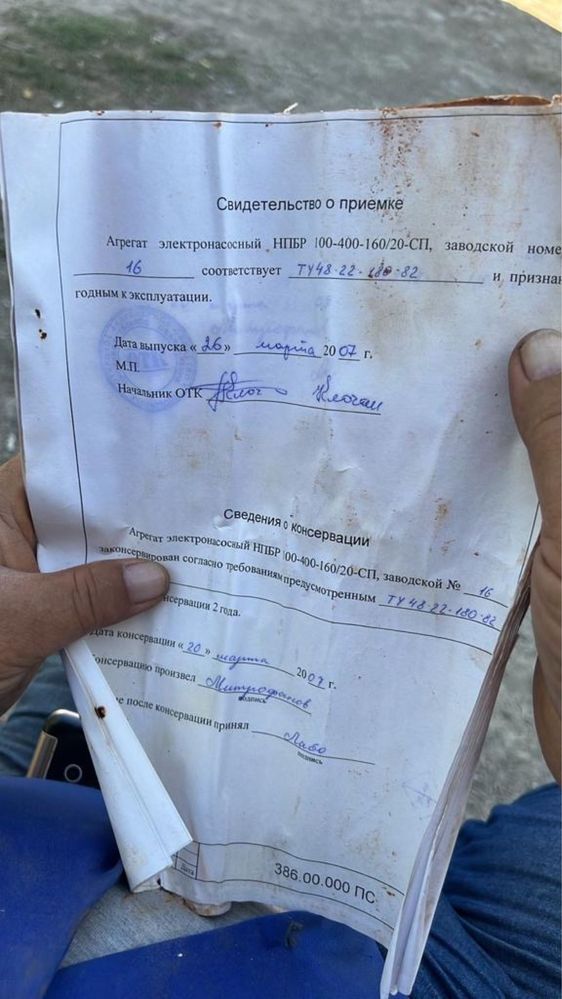 Свидетельство о приемке
Агрегат электронасосный НПБР 100-400-160/20-СП, заводской номе
16 соответствует ТУ48-22-180-82 и признан
годным к эксплуатации.
Дата выпуска «26» марта 2007 г.
М.П.
Начальник ОТК Клочан
Сведения о консервации
Агрегат электронасосный НПБР 100-400-160/20-СП, заводской № 16
законсервирован согласно требованиям предусмотренным ТУ 48-22-180-82
нсервации 2 года.
Дата консервации «20» марта 2007 г.
онсервацию произвел Митрофанов
подпись
е после консервации принял Лабо
подпись
Дата
386.00.000 ПС